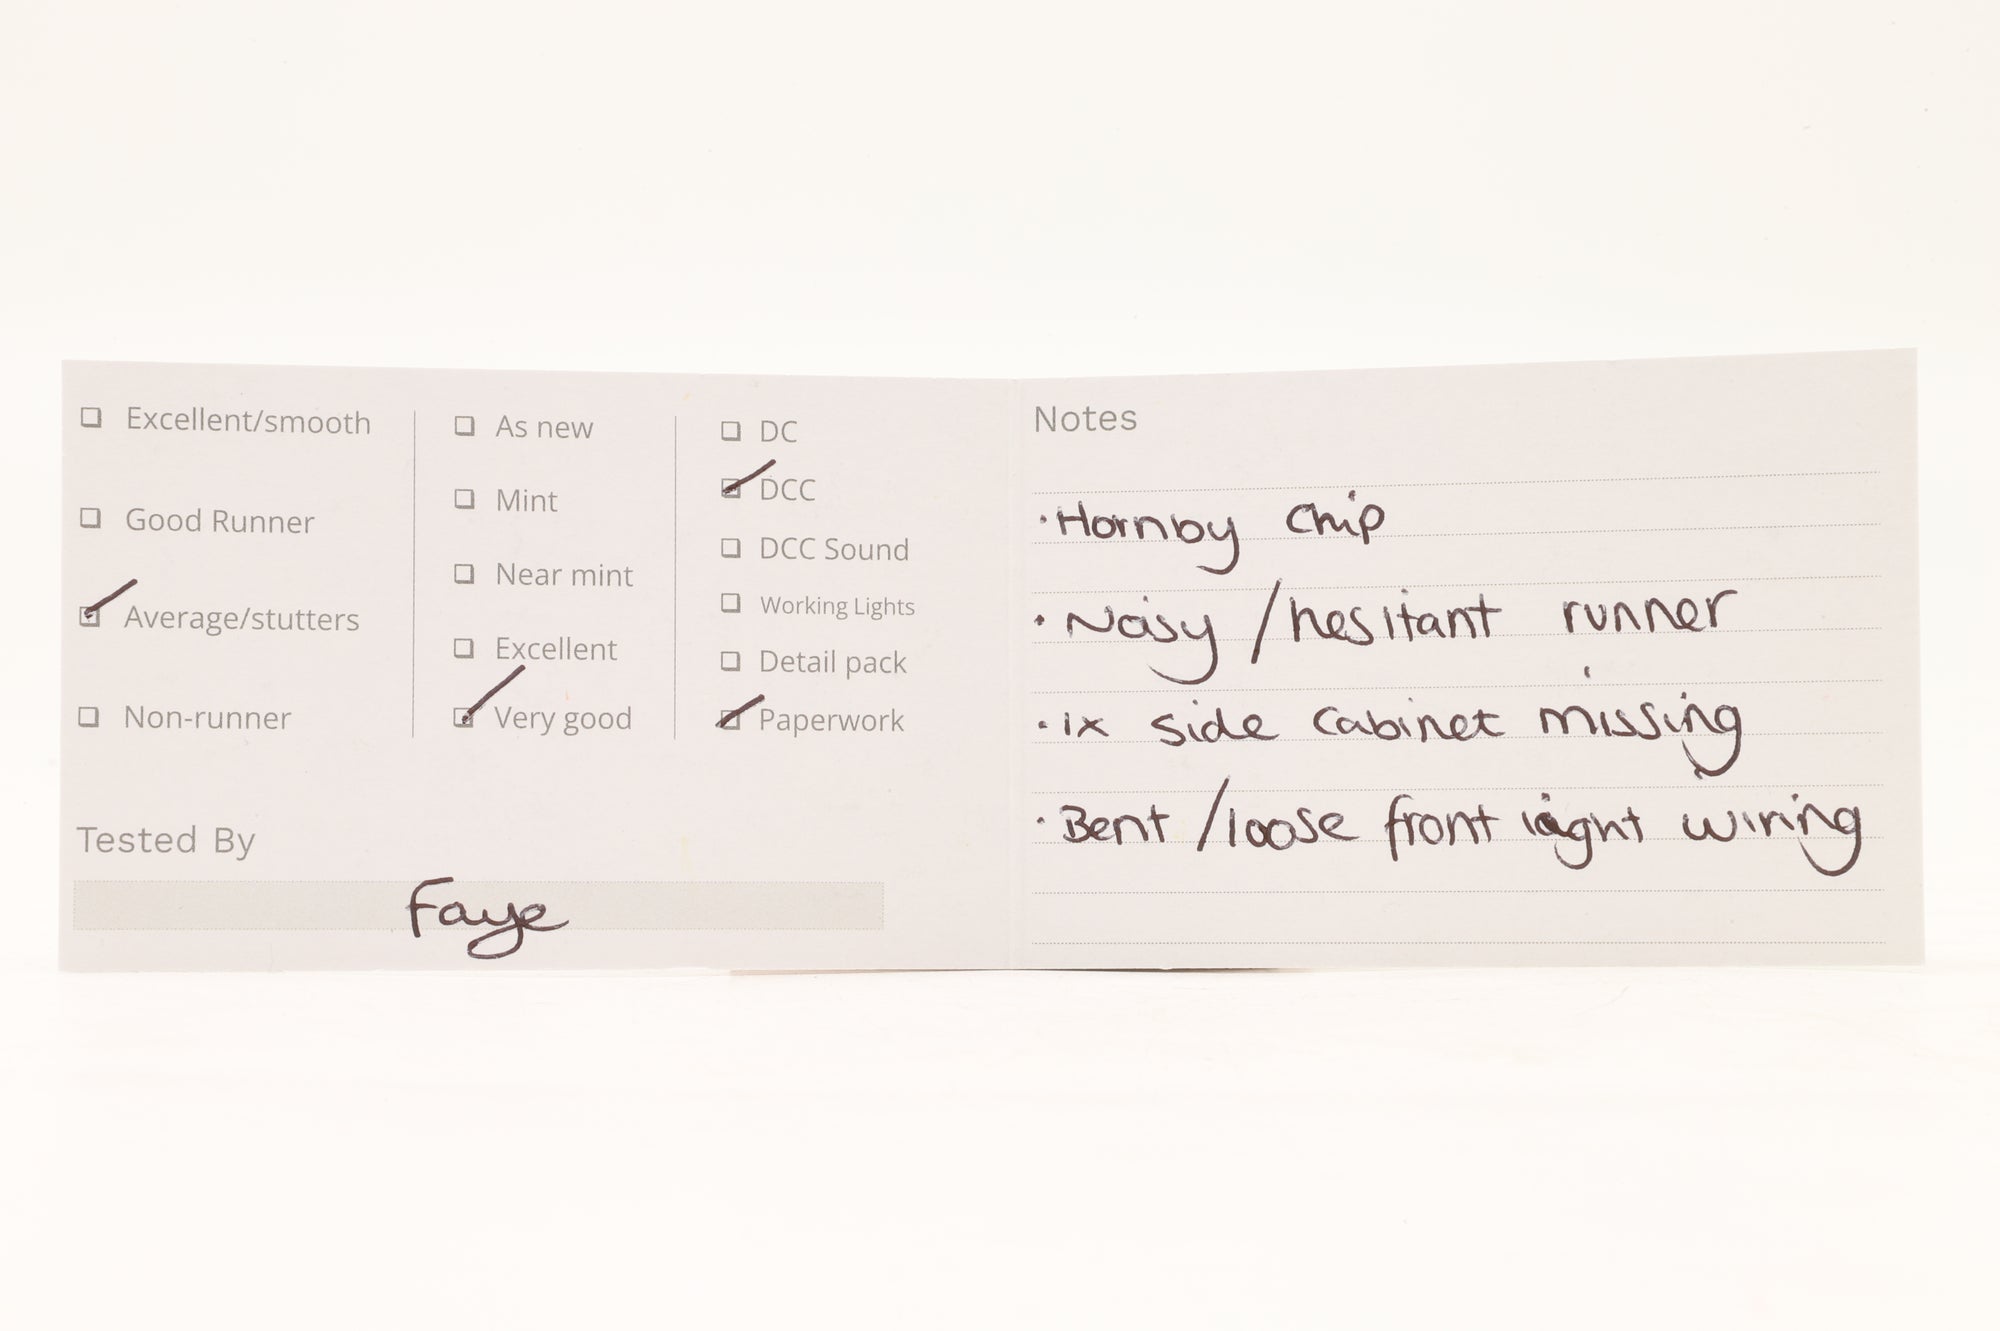 Excellent/smooth
Good Runner
Average/stutters
Non-runner
As new
Mint
Near mint
Excellent
Very good
DC
DCC
DCC Sound
Working Lights
Detail pack
Paperwork
Tested By
Faye
Notes
· Hornby Chip
· Noisy / hesitant runner
· 1x side cabinet missing
· Bent / loose front light wiring